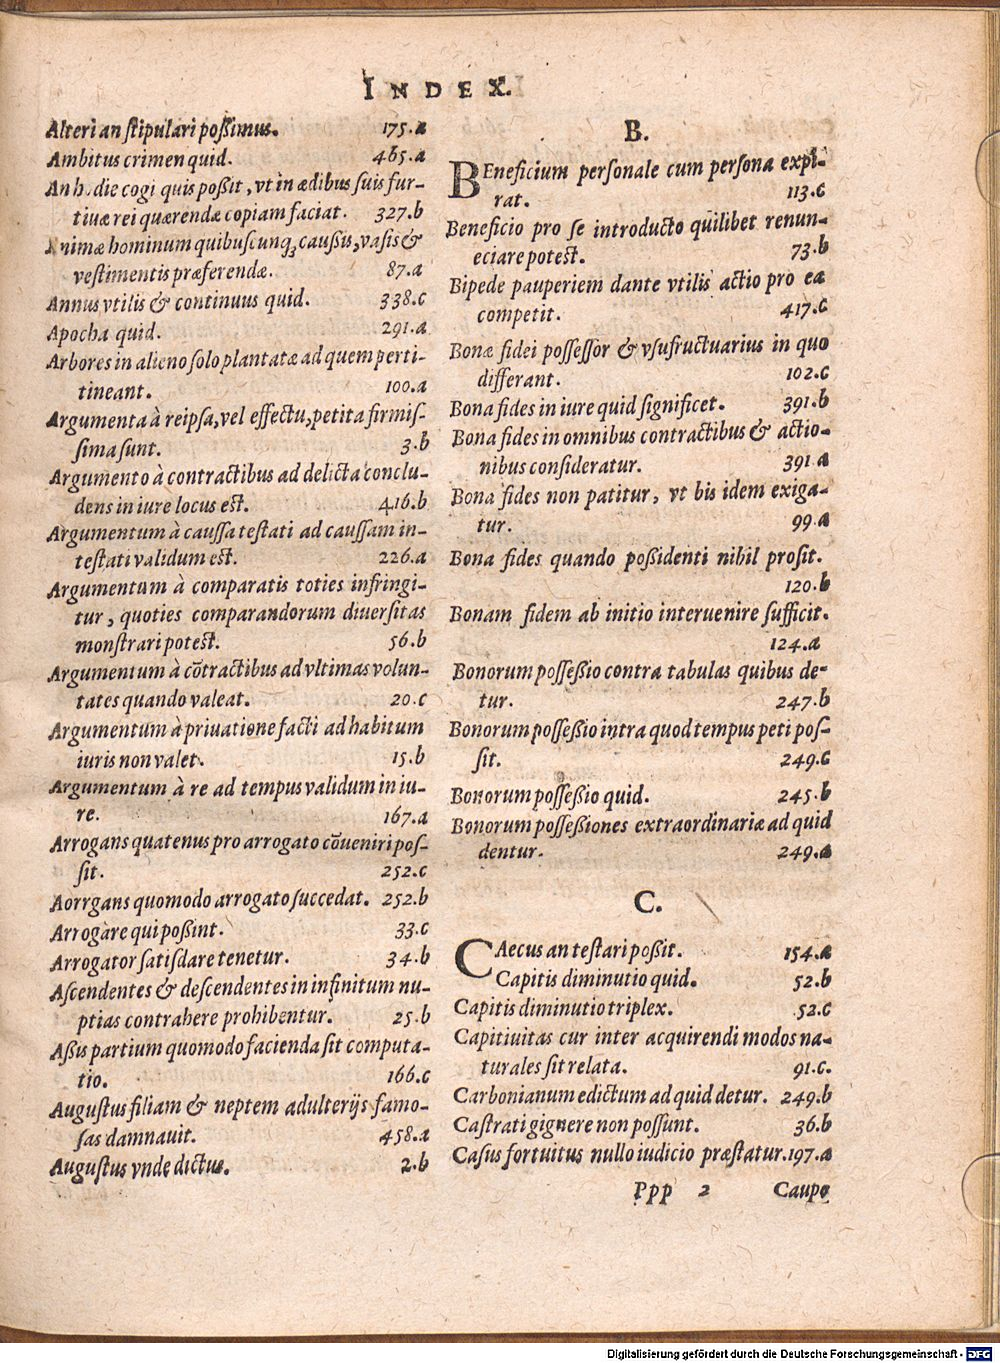 INDEX.
Alteri an ſtipulari poßimus. 175.a
Ambitus crimen quid. 465.a
An hodie cogi quis poßit, vt in ædibus ſuis fur-
tiuæ rei quærendæ copiam faciat. 327.b
Animæ hominum quibuſcunq; cauſsis, vaſis &
veſtimentis præferendæ. 87.a
Annus vtilis & continuus quid. 338.c
Apocha quid. 291.a
Arbores in alieno ſolo plantatæ ad quem perti-
tineant. 100.a
Argumenta à reipſa, vel effectu, petita firmiſ-
ſima ſunt. 3.b
Argumento à contractibus ad delicta conclu-
dens in iure locus eſt. 416.b
Argumentum à cauſſa teſtati ad cauſſam in-
teſtati validum eſt. 226.a
Argumentum à comparatis toties infringi-
tur, quoties comparandorum diuerſitas
monſtrari poteſt. 56.b
Argumentum à cōtractibus ad vltimas volun-
tates quando valeat. 20.c
Argumentum à priuatione facti ad habitum
iuris non valet. 15.b
Argumentum à re ad tempus validum in iu-
re. 167.a
Arrogans quatenus pro arrogato cōueniri poſ-
ſit. 252.c
Aorrgans quomodo arrogato ſuccedat. 252.b
Arrogare qui poßint. 33.c
Arrogator ſatiſdare tenetur. 34.b
Aſcendentes & deſcendentes in infinitum nu-
ptias contrahere prohibentur. 25.b
Aßis partium quomodo facienda ſit computa-
tio. 166.c
Auguſtus filiam & neptem adulterijs famo-
ſas damnauit. 458.a
Auguſtus vnde dictus. 2.b
B.
BEneficium perſonale cum perſona expi-
rat. 113.c
Beneficio pro ſe introducto quilibet renun-
eciare poteſt. 73.b
Bipede pauperiem dante vtilis actio pro ea
competit. 417.c
Bonæ fidei poſſeſſor & vſufructuarius in quo
differant. 102.c
Bona fides in iure quid ſignificet. 391.b
Bona fides in omnibus contractibus & actio-
nibus conſideratur. 391.a
Bona fides non patitur, vt bis idem exiga-
tur. 99.a
Bona fides quando poßidenti nihil proſit.
120.b
Bonam fidem ab initio interuenire ſufficit.
124.a
Bonorum poſſeßio contra tabulas quibus de-
tur. 247.b
Bonorum poſſeßio intra quod tempus peti poſ-
ſit. 249.c
Bonorum poſſeßio quid. 245.b
Bonorum poſſeßiones extraordinariæ ad quid
dentur. 249.a
C.
CAecus an teſtari poßit. 154.a
Capitis diminutio quid. 52.b
Capitis diminutio triplex. 52.c
Capitiuitas cur inter acquirendi modos na-
turales ſit relata. 91.c.
Carbonianum edictum ad quid detur. 249.b
Caſtrati gignere non poſſunt. 36.b
Caſus fortuitus nullo iudicio præſtatur. 197.a
Ppp 2 Caupo
Digitalisierung gefördert durch die Deutsche Forschungsgemeinschaft - DFG